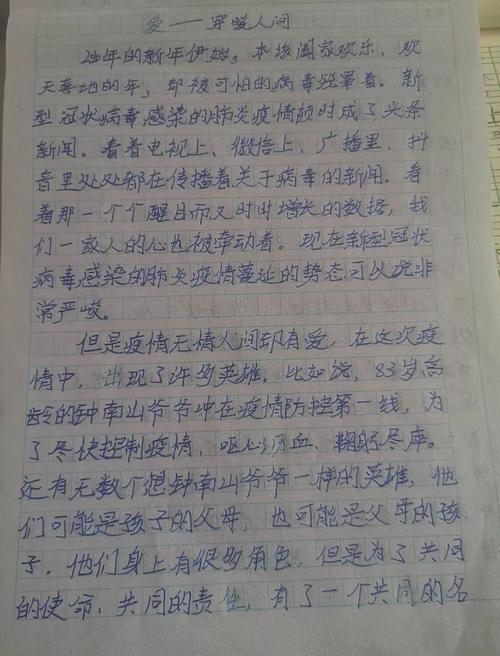 爱——穿暖人间
20年的新年伊始。本该阖家欢乐，欢
天喜地的年，却被可怕的病毒笼罩着。新
型冠状病毒感染的肺炎疫情顿时成了头条
新闻。看着电视上、微信上、广播里、抖
音里处处都在传播着关于病毒的新闻。看
着那一个个醒目而又时时增长的数据，我
们一家人的心也被牵动着。现在新型冠状
病毒感染的肺炎疫情蔓延的势态可以说非
常严峻。
但是疫情无情人间却有爱，在这次疫
情中，出现了许多英雄，比如说，83岁高
龄的钟南山爷爷冲在疫情防控第一线，为
了尽快控制疫情，呕心沥血、鞠躬尽瘁。
还有无数个想钟南山爷爷一样的英雄，他
们可能是孩子的父母，也可能是父母的孩
子，他们身上有很多角色，但是为了共同
的使命，共同的责任，有了一个共同的名